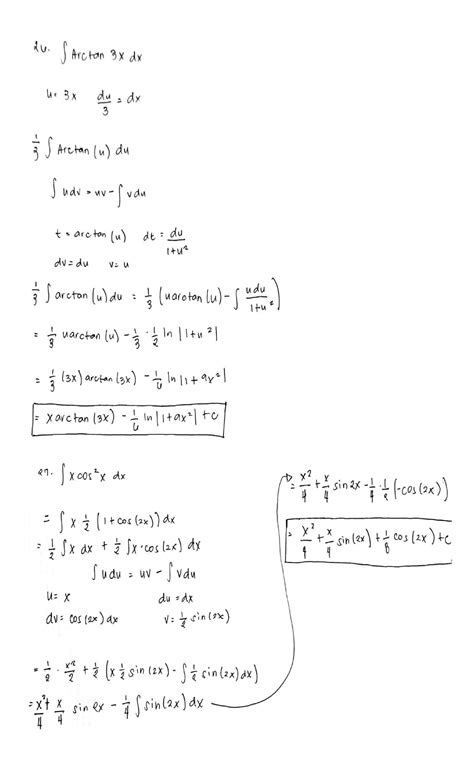 26. ∫ Arctan 3x dx
u = 3x du/3 = dx
1/3 ∫ Arctan (u) du
∫ u dv = uv - ∫ v du
t = arctan (u) dt = du/1+u²
dv = du v = u
1/3 ∫ arctan (u) du = 1/3 (u arctan (u) - ∫ u du/1+u²)
= 1/3 u arctan (u) - 1/3 · 1/2 ln |1+u²|
= 1/3 (3x) arctan (3x) - 1/6 ln |1+9x²|
= x arctan (3x) - 1/6 ln |1+9x²| + c
27. ∫ x cos² x dx
= ∫ x 1/2 (1 + cos (2x)) dx
= 1/2 ∫ x dx + 1/2 ∫ x · cos (2x) dx
∫ u du = uv - ∫ v du
u = x du = dx
dv = cos (2x) dx v = 1/2 sin (2x)
= 1/2 · x²/2 + 1/2 (x 1/2 sin (2x) - ∫ 1/2 sin (2x) dx)
= x²/4 + x/4 sin 2x - 1/4 ∫ sin (2x) dx
= x²/4 + x/4 sin 2x - 1/4 · 1/2 (-cos (2x))
= x²/4 + x/4 sin (2x) + 1/8 cos (2x) + c